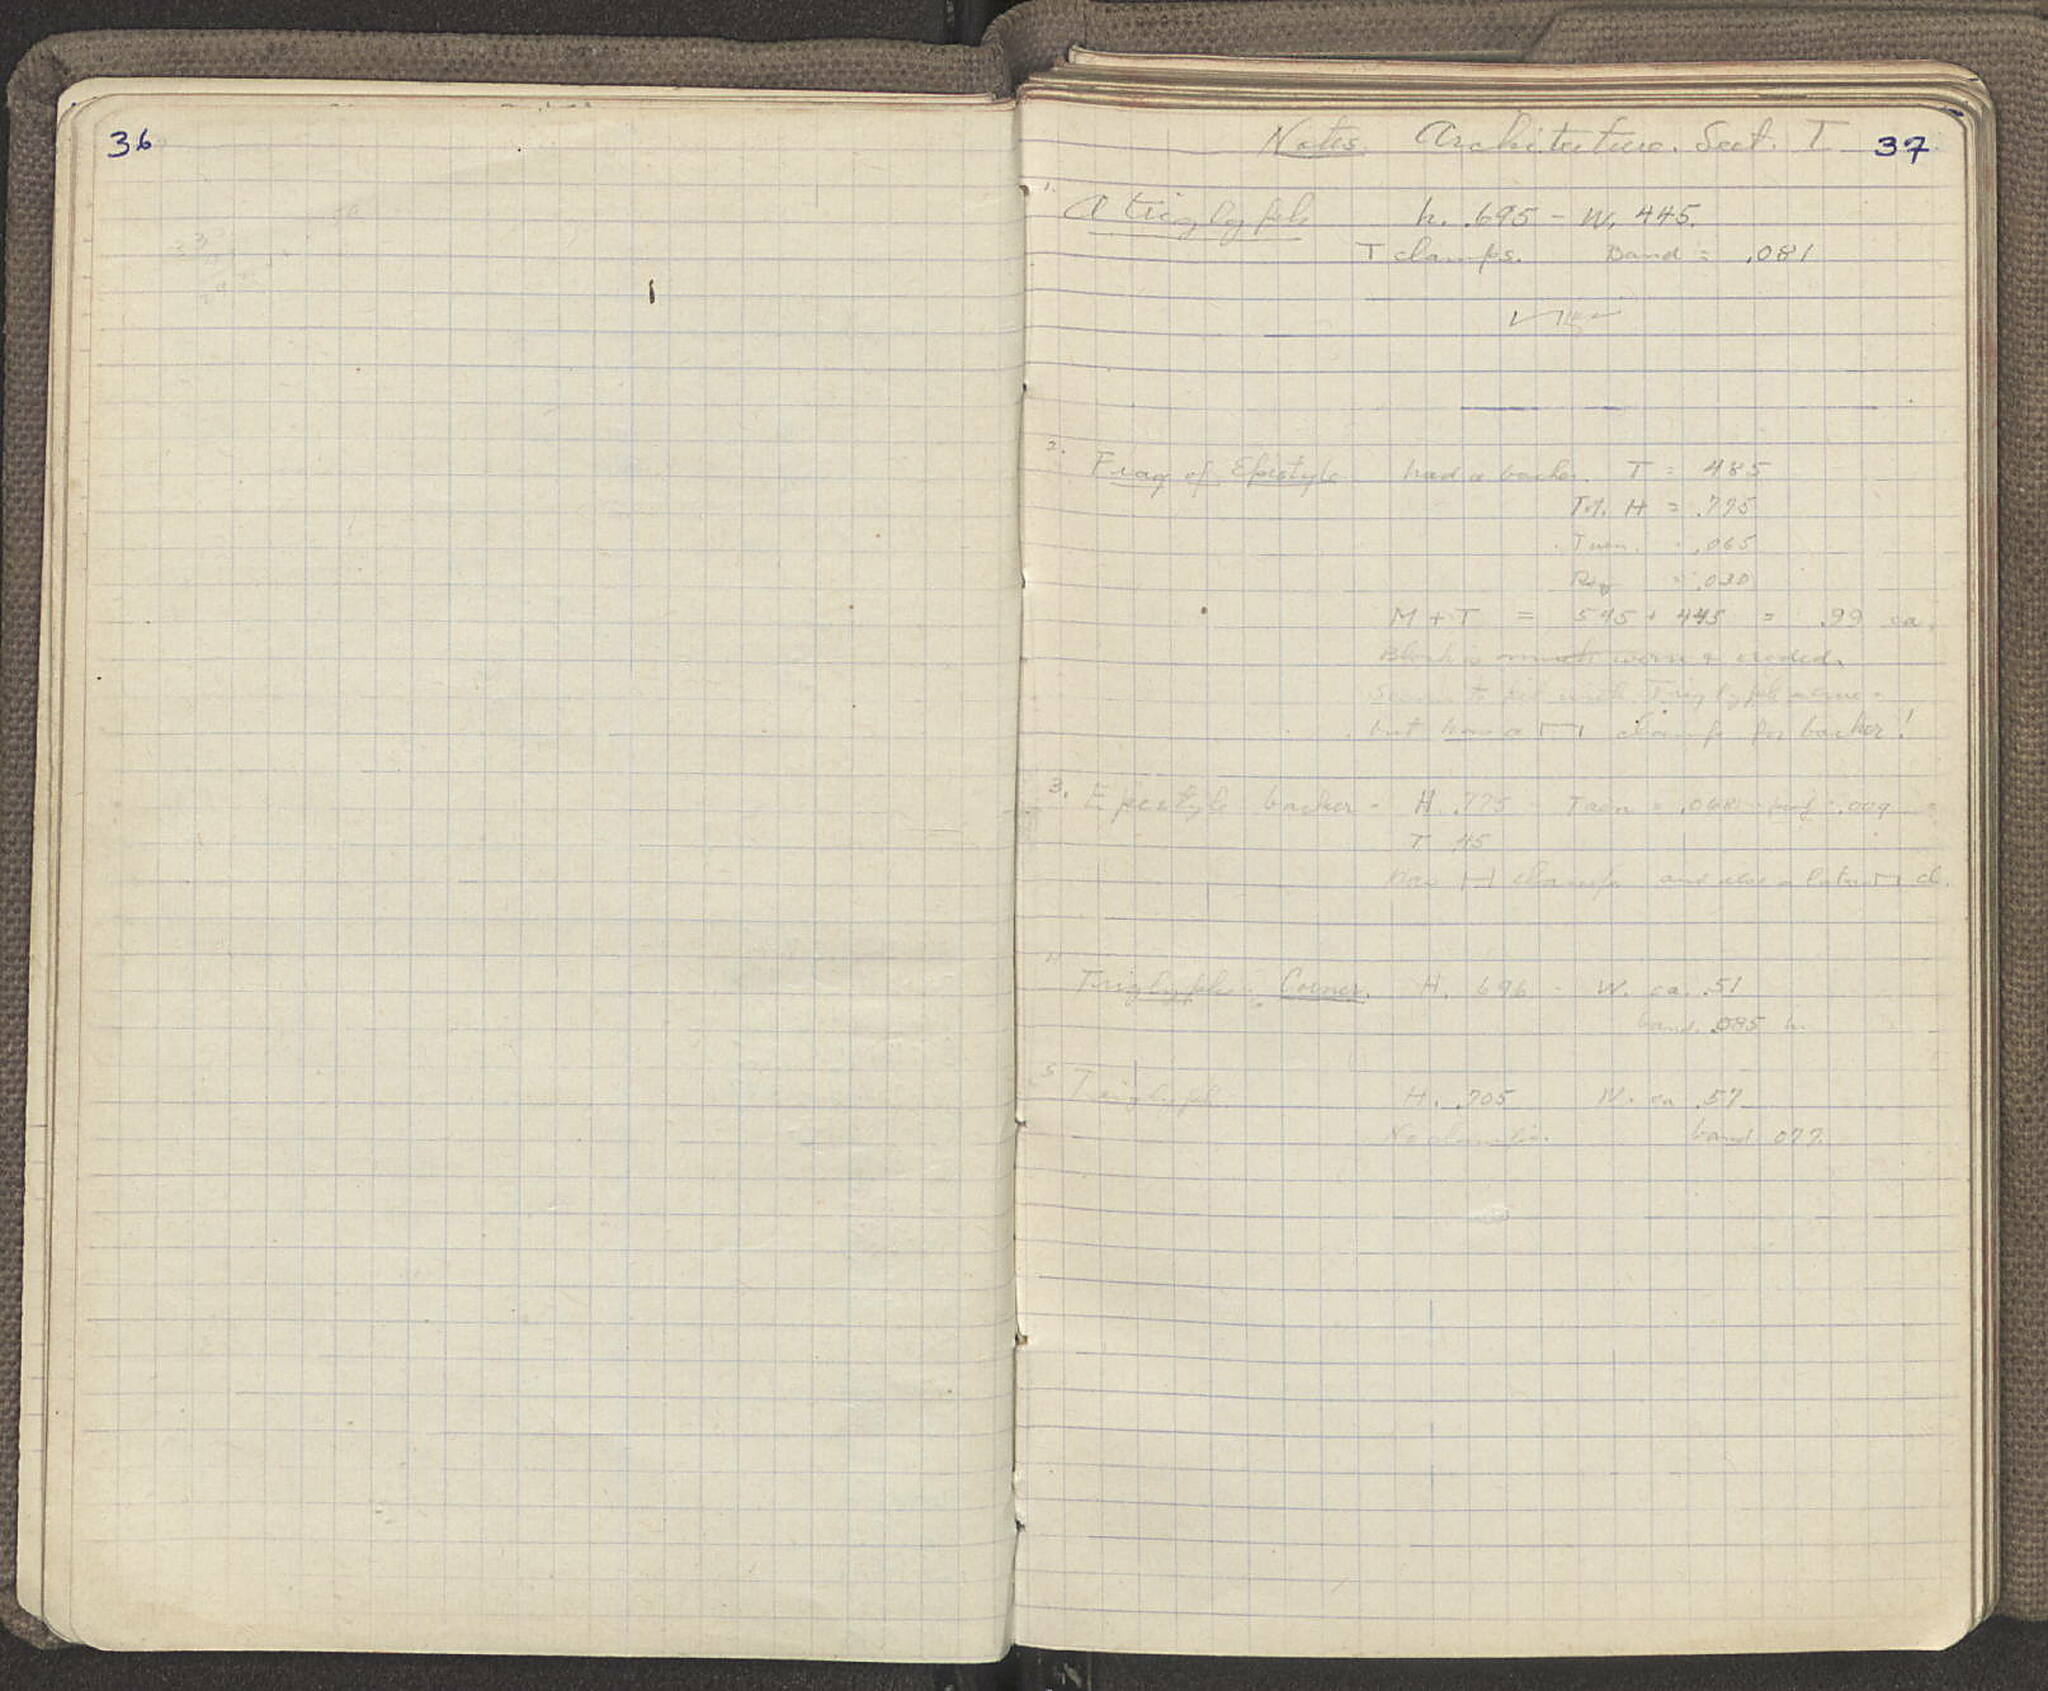 36
37
Notes Architecture. Sect. I
1. A triglyph h. .695 - W. 445.
T clamps. Band = .081
2. Frag of Epistyle had a backer. T = 485
Tot. H = .775
Taen. .065
Reg = .030
M + T = 545 + 445 = .99 ca.
Block is much worn & eroded.
Seems to fit with Triglyph above -
but has a clamp for backer!
3. Epistyle backer - H .775 - Taen = .068 - proj .009
T 45
Has H clamps and also a later cl.
Triglyph - Corner. H. 696 - W. ca. .51
band .085 h.
5 Triglyph H. .705 W. ca .57
No clamps. band 077.